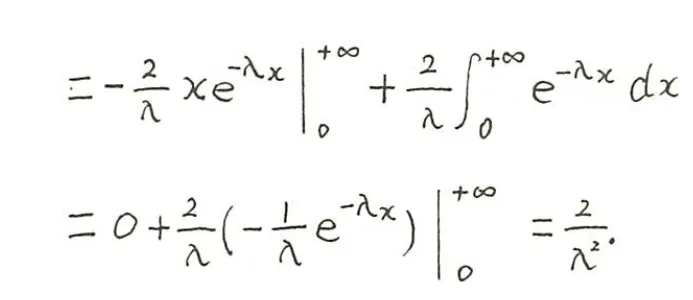 = -\frac{2}{λ} x e^{-λx} |_{0}^{+∞} + \frac{2}{λ} ∫_{0}^{+∞} e^{-λx} dx
= 0 + \frac{2}{λ} (-\frac{1}{λ} e^{-λx}) |_{0}^{+∞} = \frac{2}{λ^{2}}.